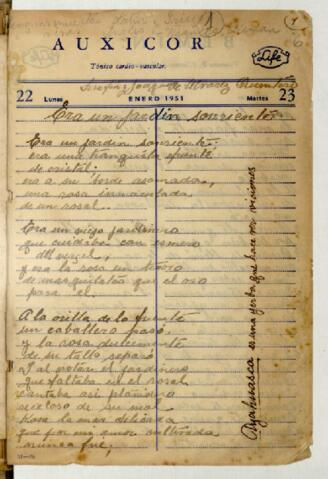 AUXICOR
Tónico cardio-vascular.
Life
22 Lunes ENERO 1951 Martes 23
Era un jardin sonriente
Era un jardin sonriente
era una tranquila fuente
de cristal;
era a su borde asomada,
una rosa inmaculada
de un rosal.
Era un viejo jardinero
que cuidaba con esmero
del vergel,
y era la rosa un tesoro
de mas quilates que el oro
para el.
A la orilla de la fuente
un caballero pasó,
y la rosa dulcemente
de su tallo separó
y al notar el jardinero
que faltaba en el rosal
cantaba asi plañidero
receloso de su mal
Rosa la mas delicada
que por mi amor cultivada
nunca fué;
Ayahuasca es una yerba que hace ver visiones